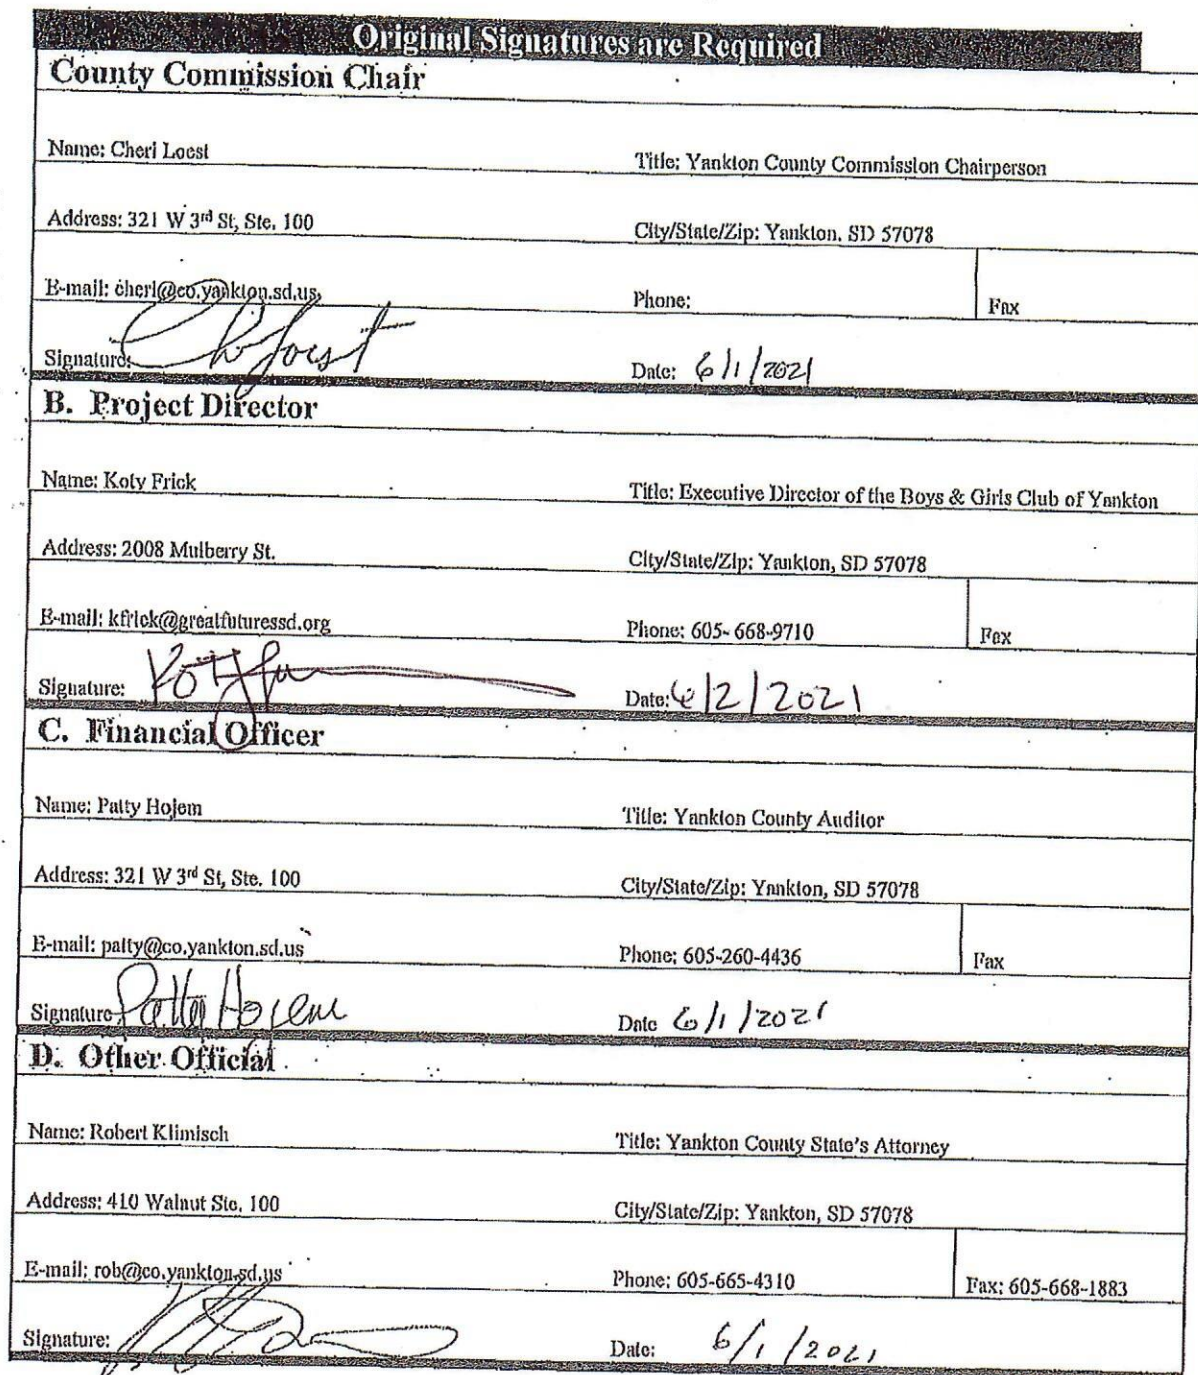 Original Signatures are Required
County Commission Chair
Name: Cheri Loest Title: Yankton County Commission Chairperson
Address: 321 W 3rd St, Ste. 100 City/State/Zip: Yankton, SD 57078
E-mail: cheri@co.yankton.sd.us Phone: Fax
Signature: Ch Loest Date: 6/1/2021
B. Project Director
Name: Koty Frick Title: Executive Director of the Boys & Girls Club of Yankton
Address: 2008 Mulberry St. City/State/Zip: Yankton, SD 57078
E-mail: kfrick@greatfuturessd.org Phone: 605- 668-9710 Fax
Signature: Koty Date: 6/2/2021
C. Financial Officer
Name: Patty Hojem Title: Yankton County Auditor
Address: 321 W 3rd St, Ste. 100 City/State/Zip: Yankton, SD 57078
E-mail: patty@co.yankton.sd.us Phone: 605-260-4436 Fax
Signature Patty Hojem Date 6/1/2021
D. Other Official
Name: Robert Klimisch Title: Yankton County State's Attorney
Address: 410 Walnut Ste. 100 City/State/Zip: Yankton, SD 57078
E-mail: rob@co.yankton.sd.us Phone: 605-665-4310 Fax: 605-668-1883
Signature: Date: 6/1/2021